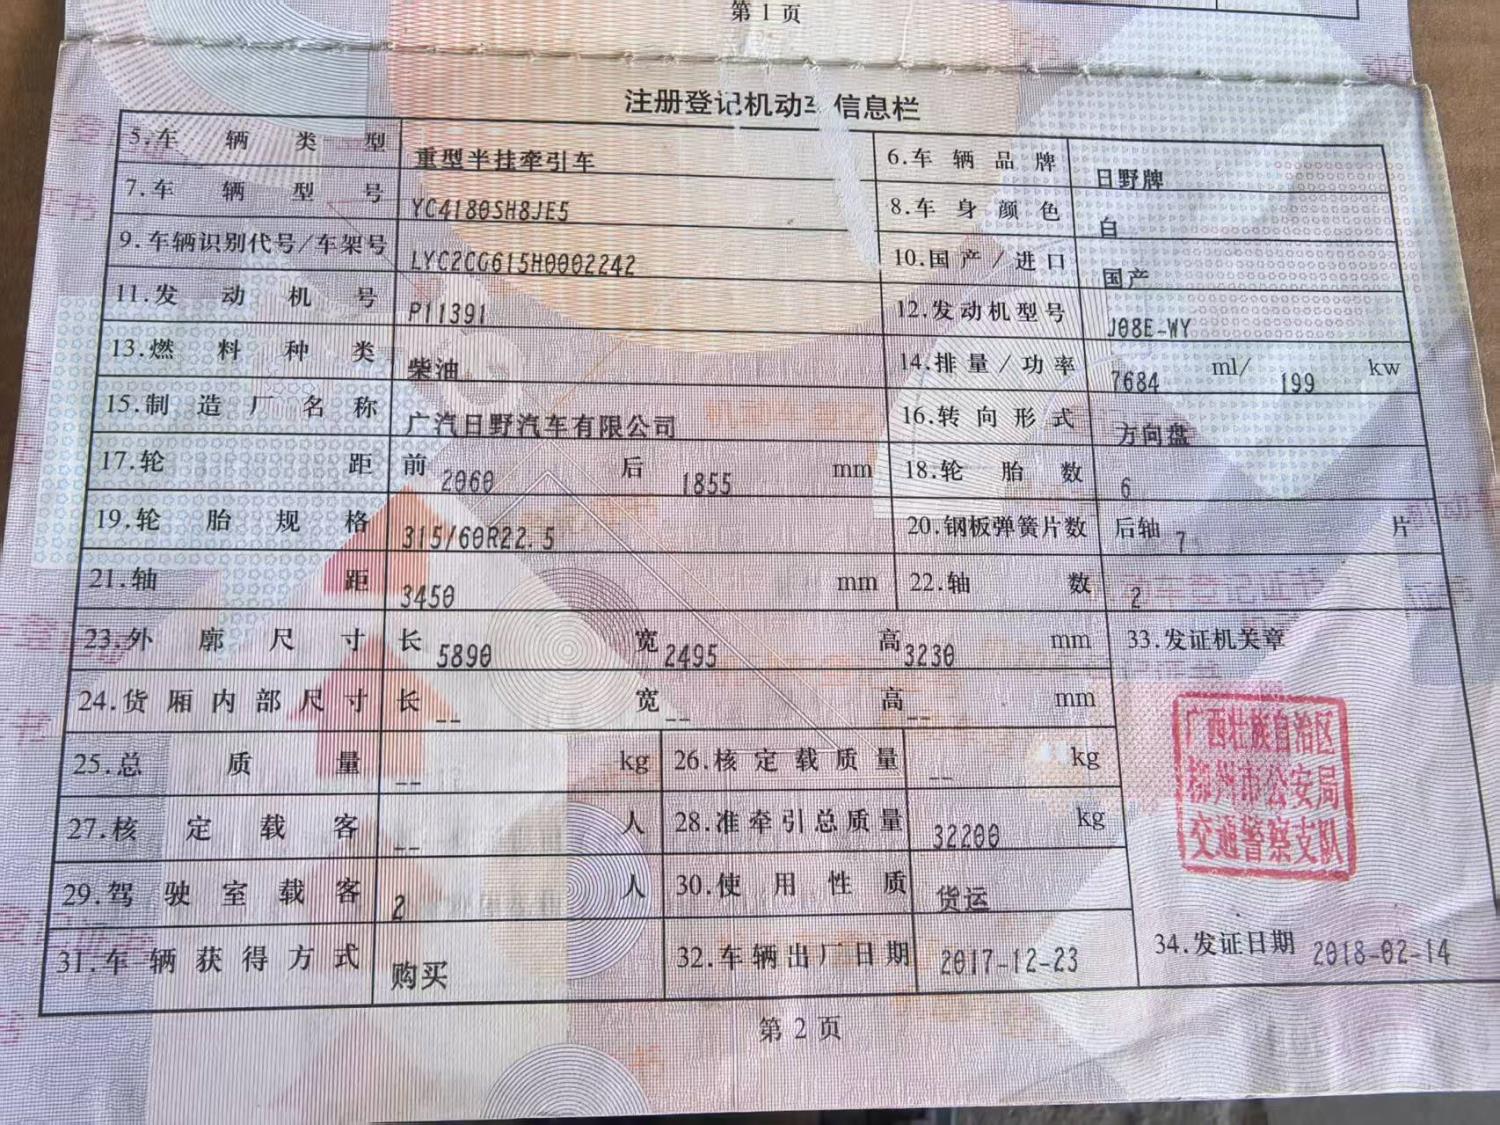 第1页
注册登记机动车信息栏
5.车辆类型 重型半挂牵引车 6.车辆品牌 日野牌
7.车辆型号 YC4180SH8JE5 8.车身颜色 白
9.车辆识别代号/车架号 LYC2CG615H0002242 10.国产/进口 国产
11.发动机号 P11391 12.发动机型号 J08E-WY
13.燃料种类 柴油 14.排量/功率 7684 ml/ 199 kw
15.制造厂名称 广汽日野汽车有限公司 16.转向形式 方向盘
17.轮距 前 2060 后 1855 mm 18.轮胎数 6
19.轮胎规格 315/60R22.5 20.钢板弹簧片数 后轴 7 片
21.轴距 3450 mm 22.轴数 2
23.外廓尺寸 长 5890 宽 2495 高 3230 mm 33.发证机关章
24.货厢内部尺寸 长 -- 宽 -- 高 -- mm
25.总质量 -- kg 26.核定载质量 -- kg
27.核定载客 -- 人 28.准牵引总质量 32200 kg
29.驾驶室载客 2 人 30.使用性质 货运
31.车辆获得方式 购买 32.车辆出厂日期 2017-12-23 34.发证日期 2018-02-14
广西壮族自治区
柳州市公安局
交通警察支队
第2页